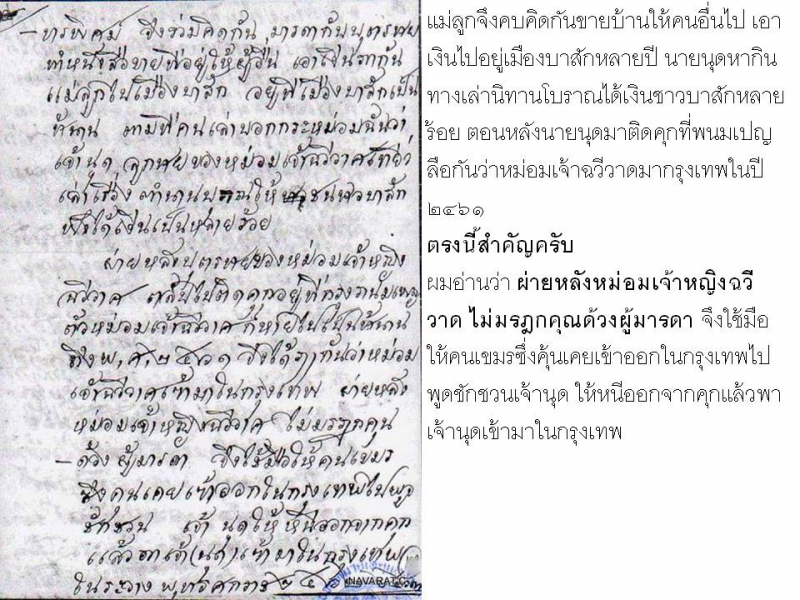 – ทรพิคุม จึงร่วมคิดกัน มารดากับบุตรชาย
ทำหนังสือขายที่อยู่ให้ผู้อื่น เอาเงินพากัน
แม่ลูกไปเมืองบาสัก อยู่ที่เมืองบาสักเป็น
ช้านาน ตามที่คนเล่าบอกกระหม่อมฉันว่า
เจ้านุด ลูกชายของหม่อมเจ้าฉวีวาดเที่ยว
เล่าเรื่อง ตำนานบูราณให้ ชาวบาสัก
ฟังได้เงินเป็นหลายร้อย
ฝ่ายหลังบุตรชายของหม่อมเจ้าหญิง
ฉวีวาด กลับไปติดคุกอยู่ที่กรุงพนมเพญ
ตัวหม่อมเจ้าฉวีวาด ก็หายไปเป็นช้านาน
ถึง พ,ศ,๒๔๖๑ จึงได้ กันว่าหม่อม
เจ้าฉวีวาดเข้ามาในกรุงเทพ ฝ่ายหลัง
หม่อมเจ้าหญิงฉวีวาด ไม่มรฎกคุน
– ด้วงผู้มารดา จึงใช้มือให้คนเขมร
ซึ่งคนเคยเข้าออกในกรุงเทพไปพูด
ชักชวน เจ้านุดให้หนีออกจากคุก
แล้วพาเจ้า(นุด)เข้ามาในกรุงเทพ
ในระวาง พุทธศักราช ๒๔๖
NAVARAT.C
แม่ลูกจึงคบคิดกันขายบ้านให้คนอื่นไป เอา
เงินไปอยู่เมืองบาสักหลายปี นายนุดหากิน
ทางเล่านิทานโบราณได้เงินชาวบาสักหลาย
ร้อย ตอนหลังนายนุดมาติดคุกที่พนมเปญ
ลือกันว่าหม่อมเจ้าฉวีวาดมากรุงเทพในปี
๒๔๖๑
ตรงนี้สำคัญครับ
ผมอ่านว่า ฝ่ายหลังหม่อมเจ้าหญิงฉวี
วาด ไม่มรฎกคุณด้วงผู้มารดา จึงใช้มือ
ให้คนเขมรซึ่งคุ้นเคยเข้าออกในกรุงเทพไป
พูดชักชวนเจ้านุด ให้หนีออกจากคุกแล้วพา
เจ้านุดเข้ามาในกรุงเทพ